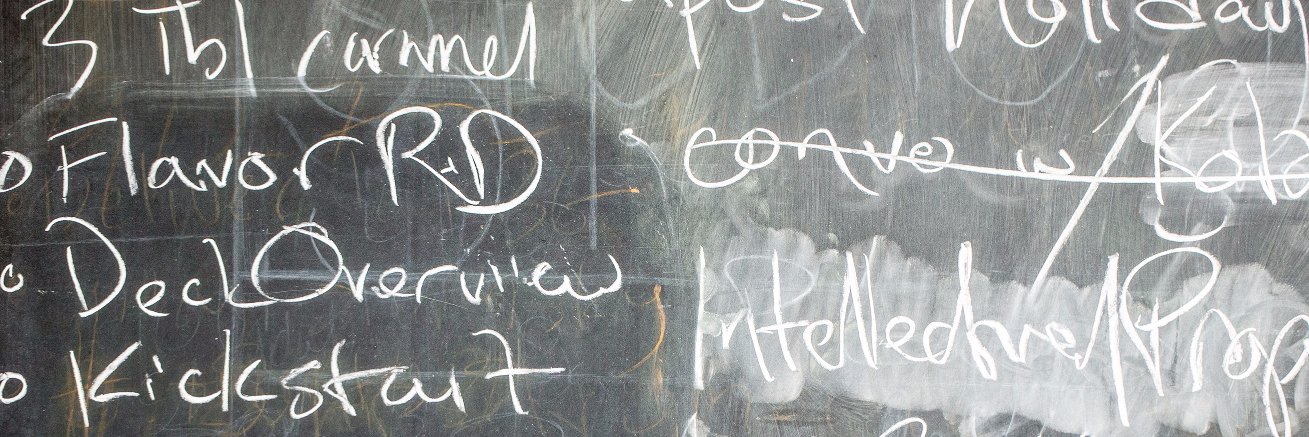 3 Tbl
Flavor R+D
Deck Overview
Kickstart
post Holiday
conve w/
Intellectual Prop